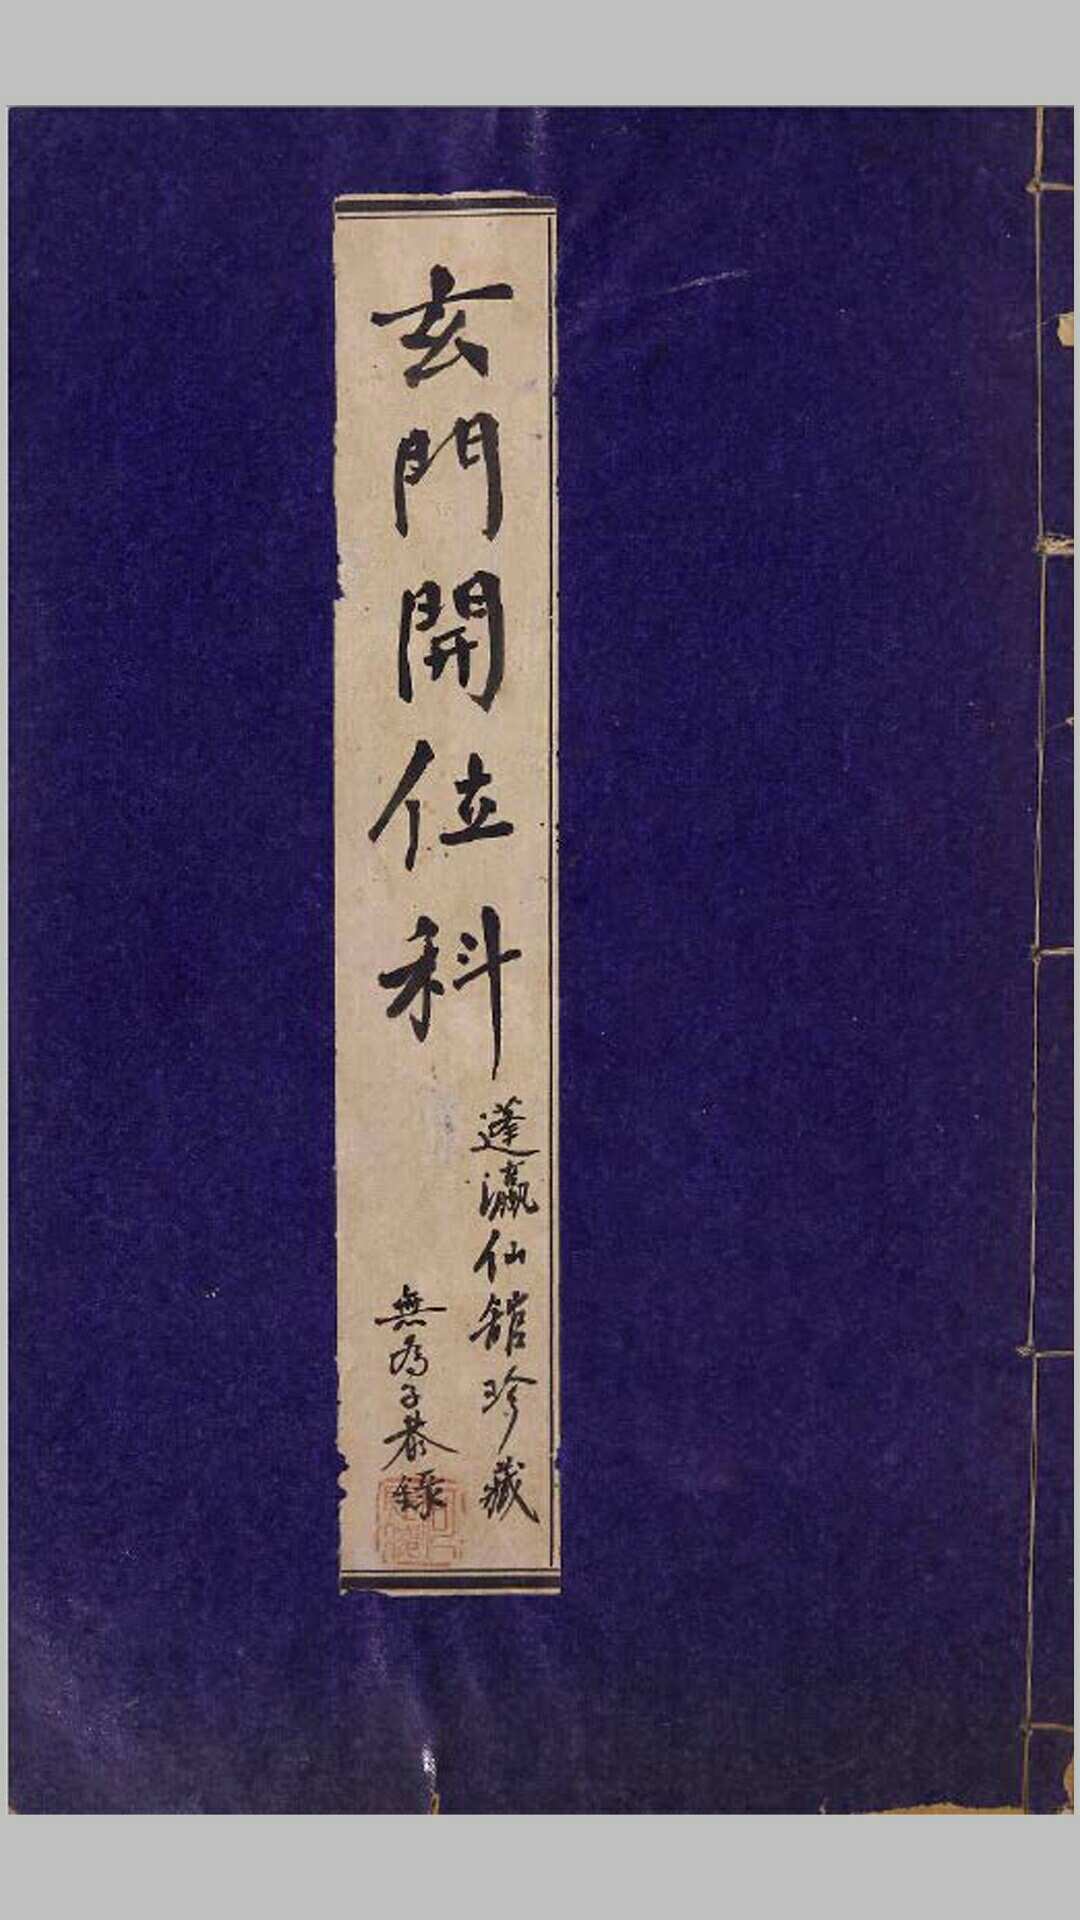 玄門開位科
蓬瀛仙館珍藏
無為子恭錄